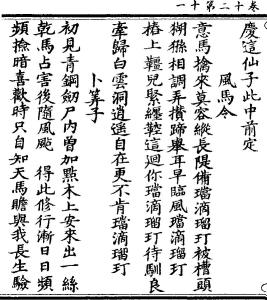 卷十二第十一
慶這仙子此中前定
風馬令
意馬擒來莫容縱長隄備璫滴瑠玎被槽頭
猢猻相調弄攢蹄舉耳早臨風璫滴瑠玎
樁上韁兒緊纏鞚這迴你璫滴瑠玎待馴良
牽歸白雲洞逍遙自在更不肯璫滴瑠玎
卜筭子
初見青鋼劒尸內曾加點木上安來出一絲
乾馬占害後隨風颩　得此修行漸日日頻
頻搇暗喜歡時只自知天馬贍與我長生驗